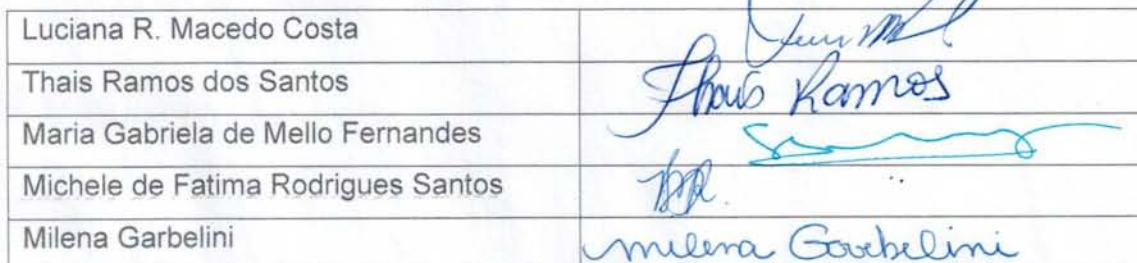 Luciana R. Macedo Costa
Thais Ramos dos Santos Thais Ramos
Maria Gabriela de Mello Fernandes
Michele de Fatima Rodrigues Santos
Milena Garbelini milena Garbelini